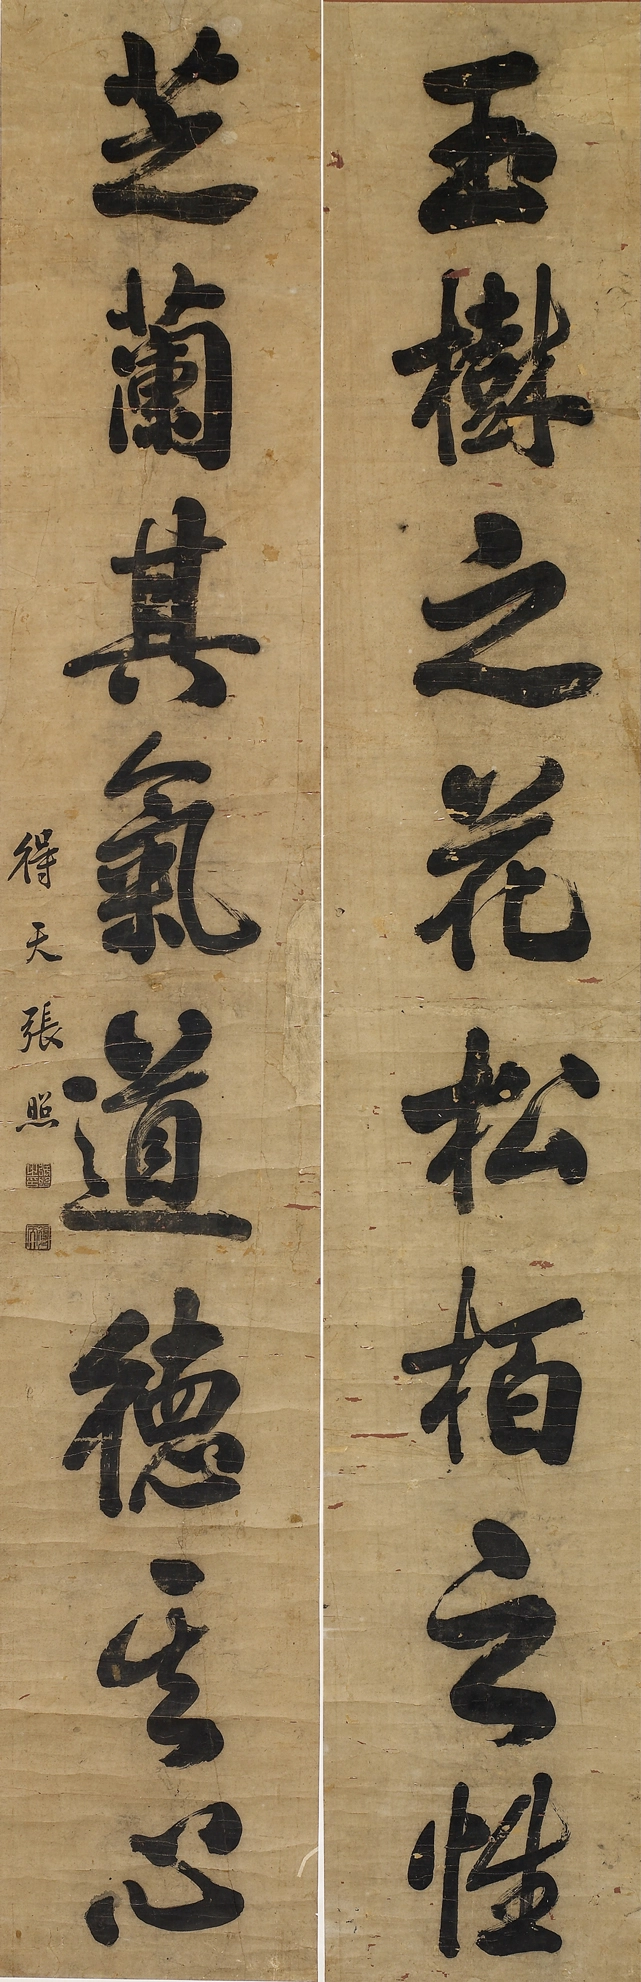 玉樹之花松栢之性
芝蘭其氣道德其心
得天張照